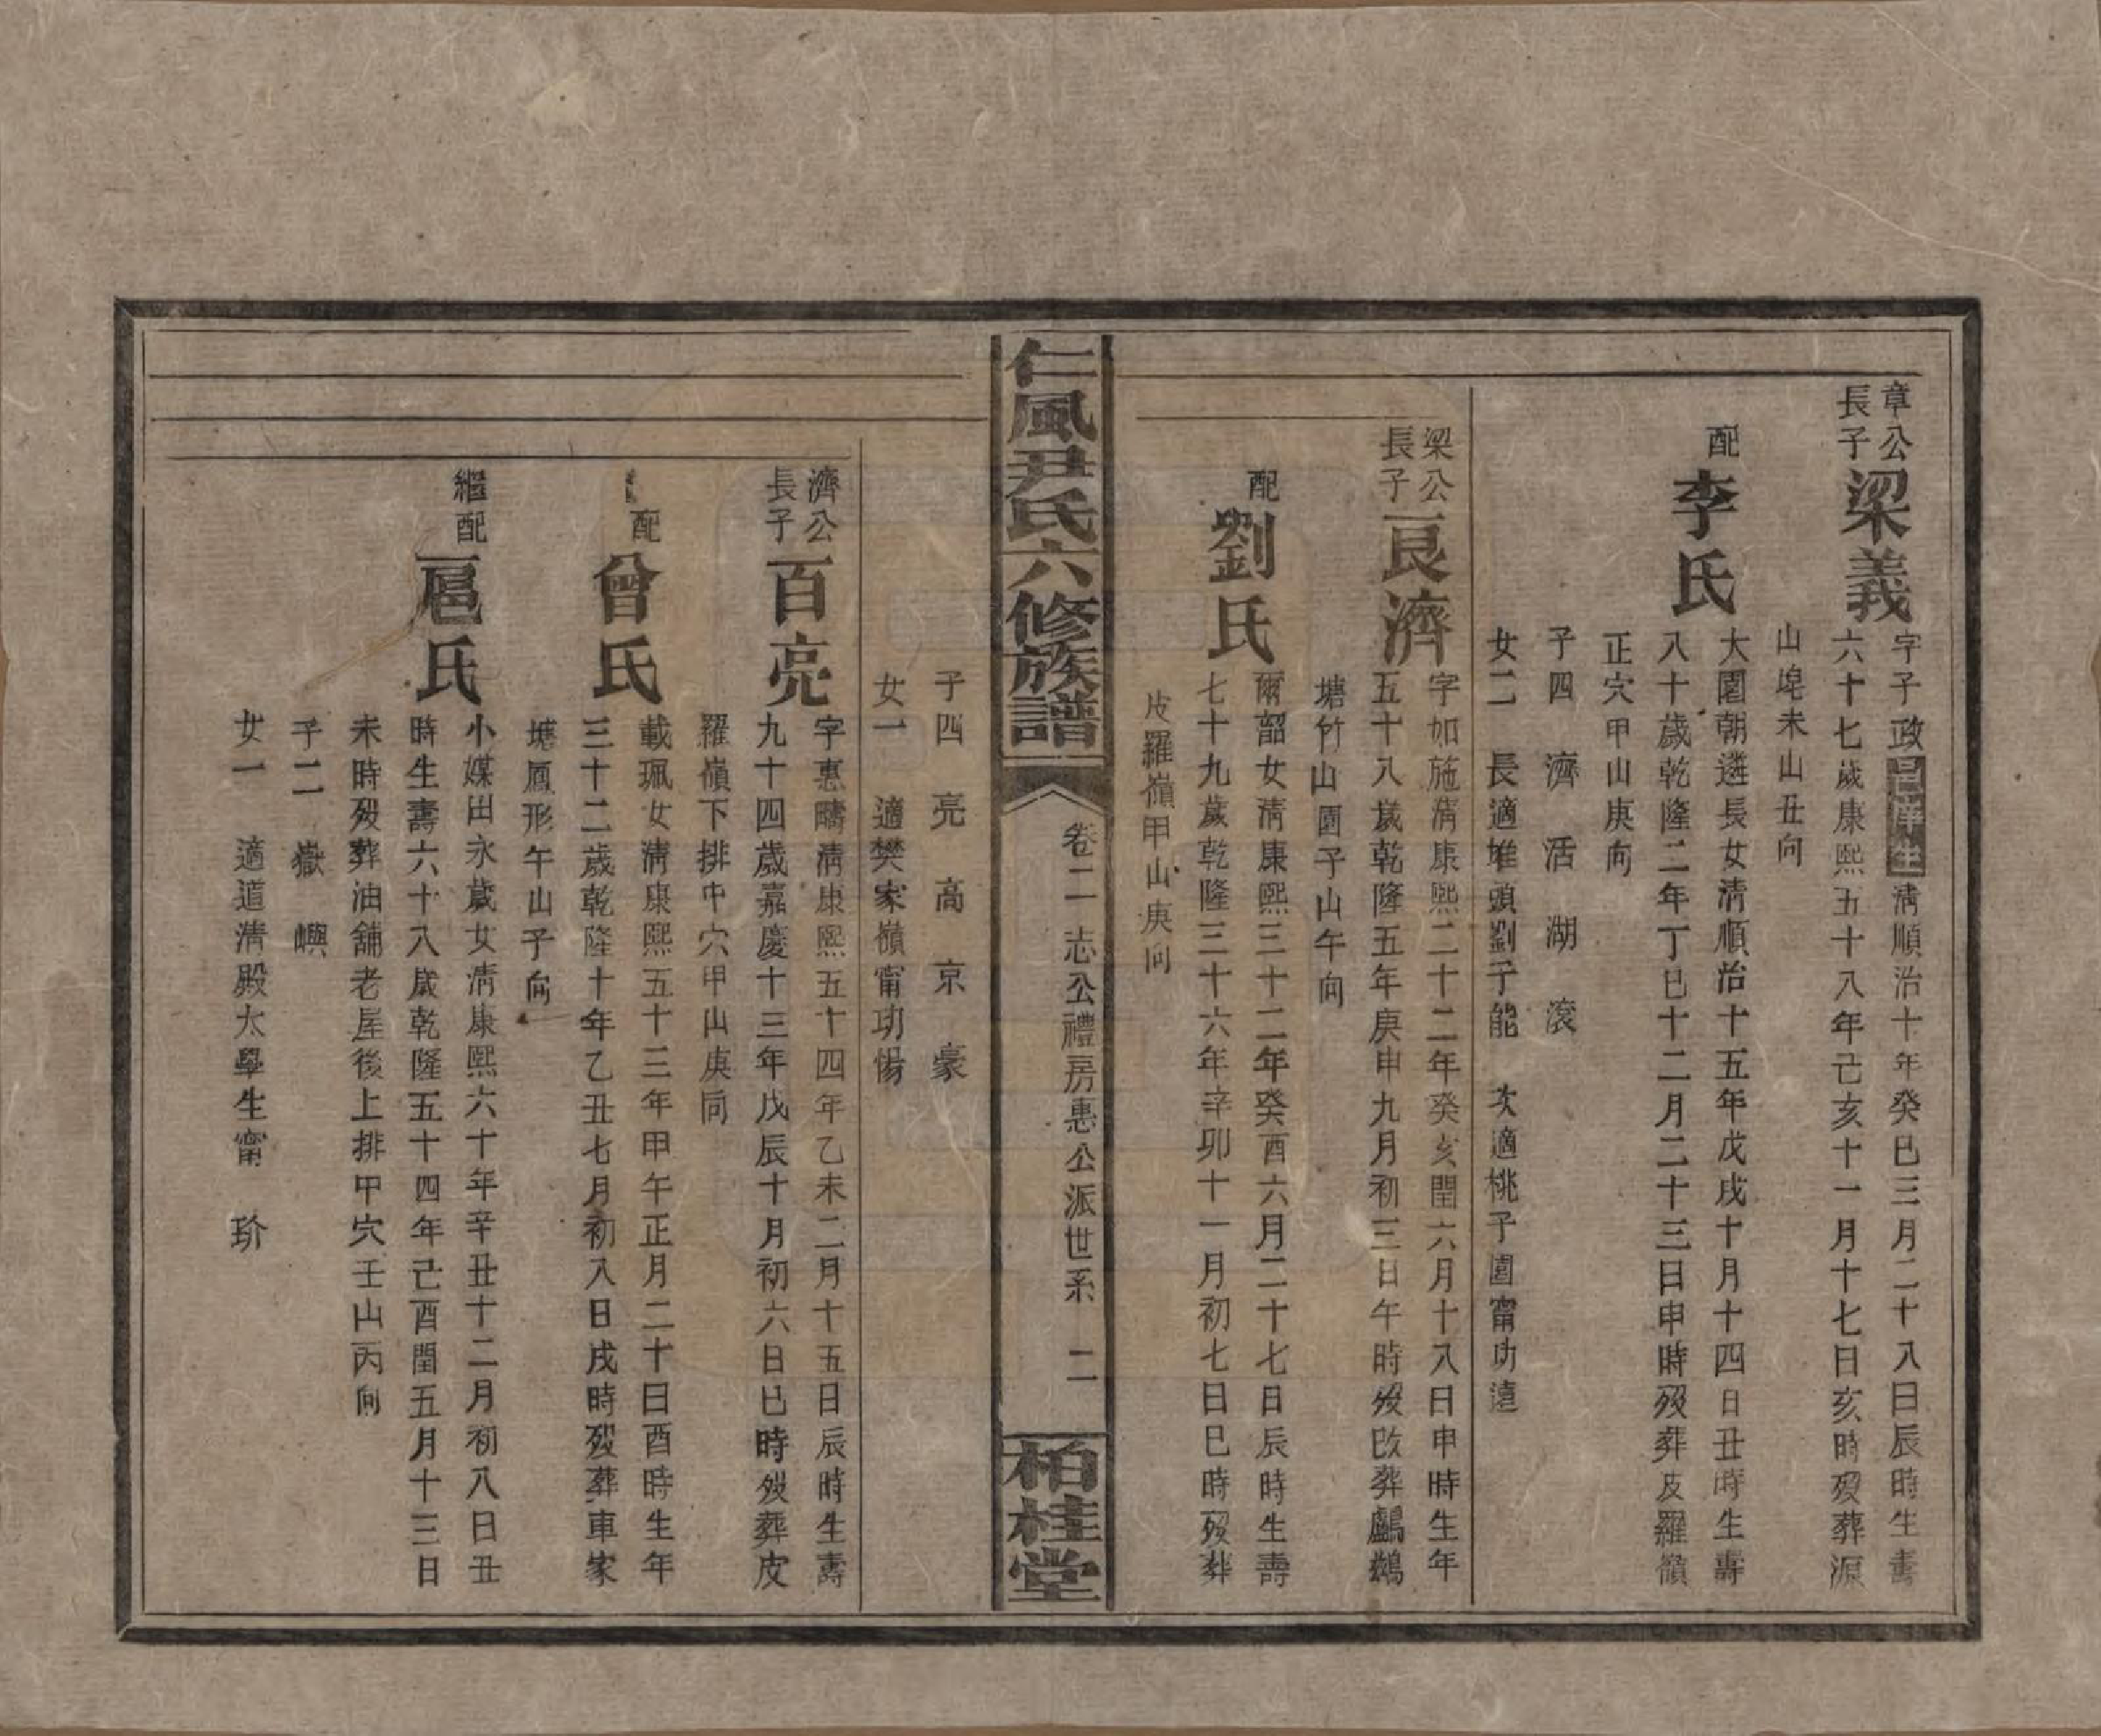 章公
長子
梁義
字子政邑庠生清順治十年癸巳三月二十八日辰時生壽
六十七歲康熙五十八年己亥十一月十七日亥時歿葬源
山塸未山丑向
配
李氏
大園朝遴長女清順治十五年戊戌十月十四日丑時生壽
八十歲乾隆二年丁巳十二月二十三日申時歿葬皮羅嶺
正穴甲山庚向
子四 濟 活 湖 滾
女二 長適堆頭劉子能 次適桃子園甯功遠
梁公
長子
良濟
字如施清康熙二十二年癸亥閏六月十八日申時生年
五十八歲乾隆五年庚申九月初三日午時歿改葬鸕鷀
塘竹山園子山午向
配
劉氏
爾韶女清康熙三十二年癸酉六月二十七日辰時生壽
七十九歲乾隆三十六年辛卯十一月初七日巳時歿葬
皮羅嶺甲山庚向
仁風尹氏六修族譜
卷二 志公禮房惠公派世系 二
柏桂堂
子四 亮 高 京 豪
女一 適樊家嶺甯功惕
濟公
長子
百亮
字惠疇清康熙五十四年乙未二月十五日辰時生壽
九十四歲嘉慶十三年戊辰十月初六日巳時歿葬皮
羅嶺下排中穴甲山庚向
配
曾氏
載珮女清康熙五十三年甲午正月二十日酉時生年
三十二歲乾隆十年乙丑七月初八日戌時歿葬車家
塘鳳形午山子向
繼配
扈氏
小媒田永歲女清康熙六十年辛丑十二月初八日丑
時生壽六十八歲乾隆五十四年己酉閏五月十三日
未時歿葬油舖老屋後上排甲穴壬山丙向
子二 嶽 嶼
女一 適道清殿太學生甯 玠